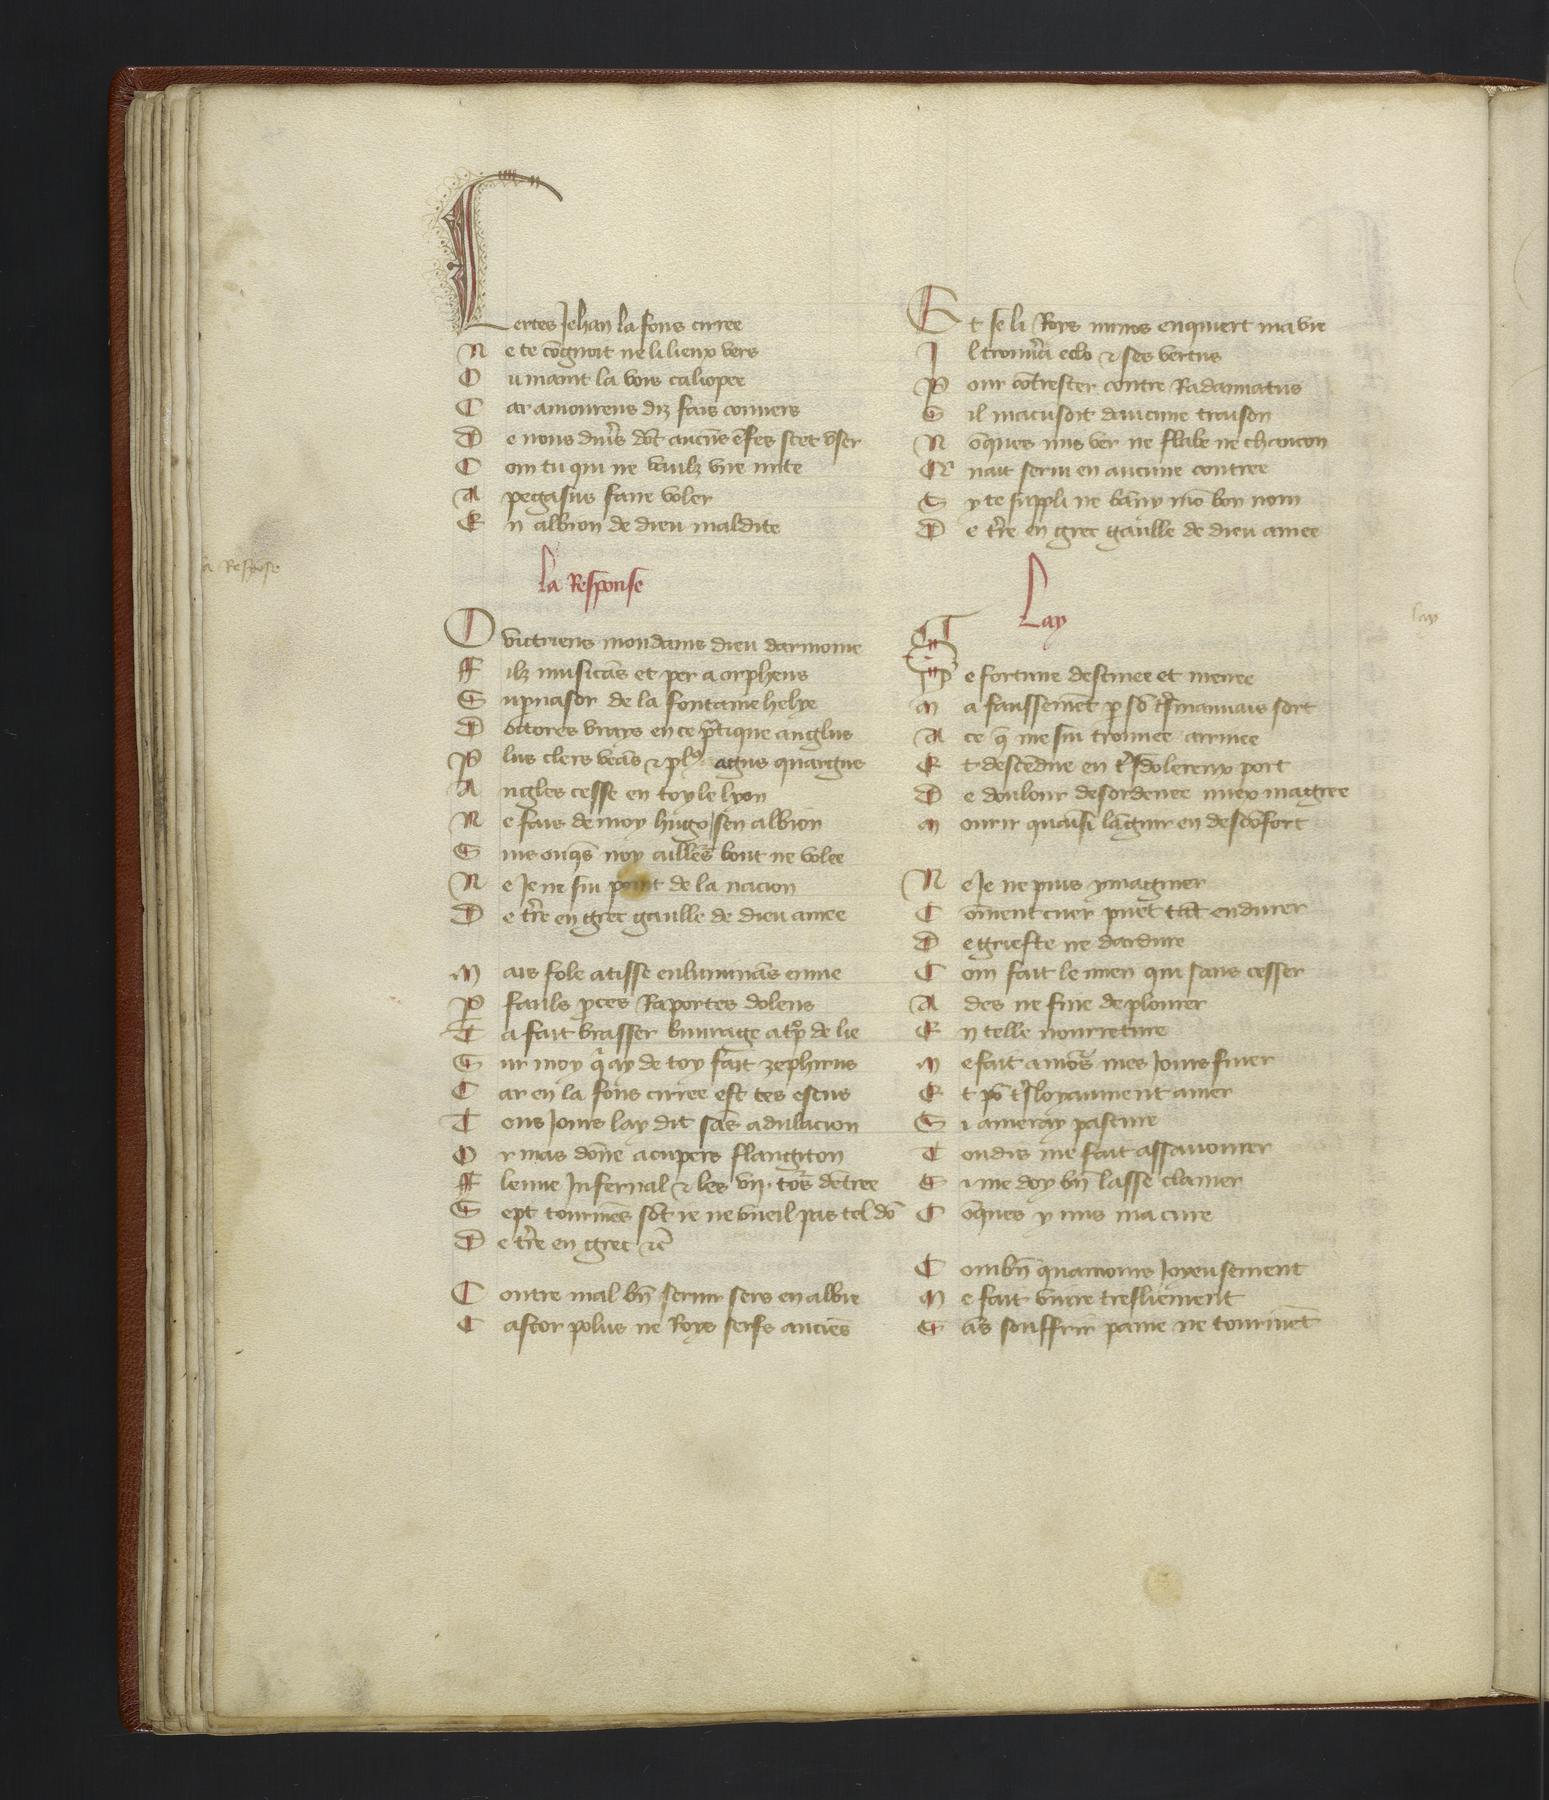 Certes Jehan la fons cirree
Ne te cõgnoit ne li lieux vers
Ou maint la vois caliopee
Car amoureus diz fais couuers
De nous diu̾s dõt aucũs ẽfes scet vser
Com tu qui ne vaulz vne mite
A pegasus faire voler
En albion de dieu maldite
la Response
la Response
O victriens mondains dieu darmonie
Filz musicãs et per a orpheus
Supernasor de la fontaine helye
Doctores vrays en ce pratique anglus
Plus clers veãs & plus agus quargus
Angles cesse en toy le lyon
Ne fais de moy hugo sen albion
Suis onqs̃ noy ailles̃ bont ne volee
Ne Je ne sui point de la nacion
De tr̃e en grec gaulle de dieu amee
Mais fole atisse enluminãs enuie
Par faulx pces Raportes dolens
Ta fait brasser buurage a tp̃ de lie
Sur moy qͥ ay de toy fait zephirus
Car en la fons cirree est tes escus
Tous Jours lay dit sãs adulacion
Or mas dõne acupers flangiton
Fleuue Infernal & les vij. tõs dẽtree
Sept tourmẽs sõt ie ne vueil pas tel dõ
De tr̃e en grec &c̃
Contre mal bñ seruir sers en albie
Castor polus ne Roys serfs anciẽs
Et se li Roys minos enquiert ma vie
Il trouuͣa eclo & ses vertus
Pour cõtrester contre Radamatus
Sil macusoit daucune traison
Nõques mis ver ne flabe ne chancon
Cr nait serui en aucune contree
Sy te suppli ne bãny mõ bon nom
De tr̃e en grec gaulle de dieu amee
Lay
lay
Se fortune destinee et menee
Ma faussemẽt p sõ tr̃smauuais sort
A ce q̃ me sui trouuee arriuee
Et descẽdue en tr̃sdolereux port
De doulour desordenee miex magree
Mourir quaisi lãguir en descõfort
Ne Je ne puis ymaginer
Cõment cuer puet tãt endurer
De griefte ne dardure
Com fait le mien qui sans cesser
Ades ne fine de plourer
En telle nourreture
Me fait amõs mes Jours finer
Et po᷑ tr̃sloyaument amer
Si ameray pasture
Toudis me fait assauourer
Si me doy bñ lasse clamer
Cõques y mis ma cure
Combñ quamours Joyeusement
Me fait viure tresliement
Sãs souffrir paine ne tourmẽt